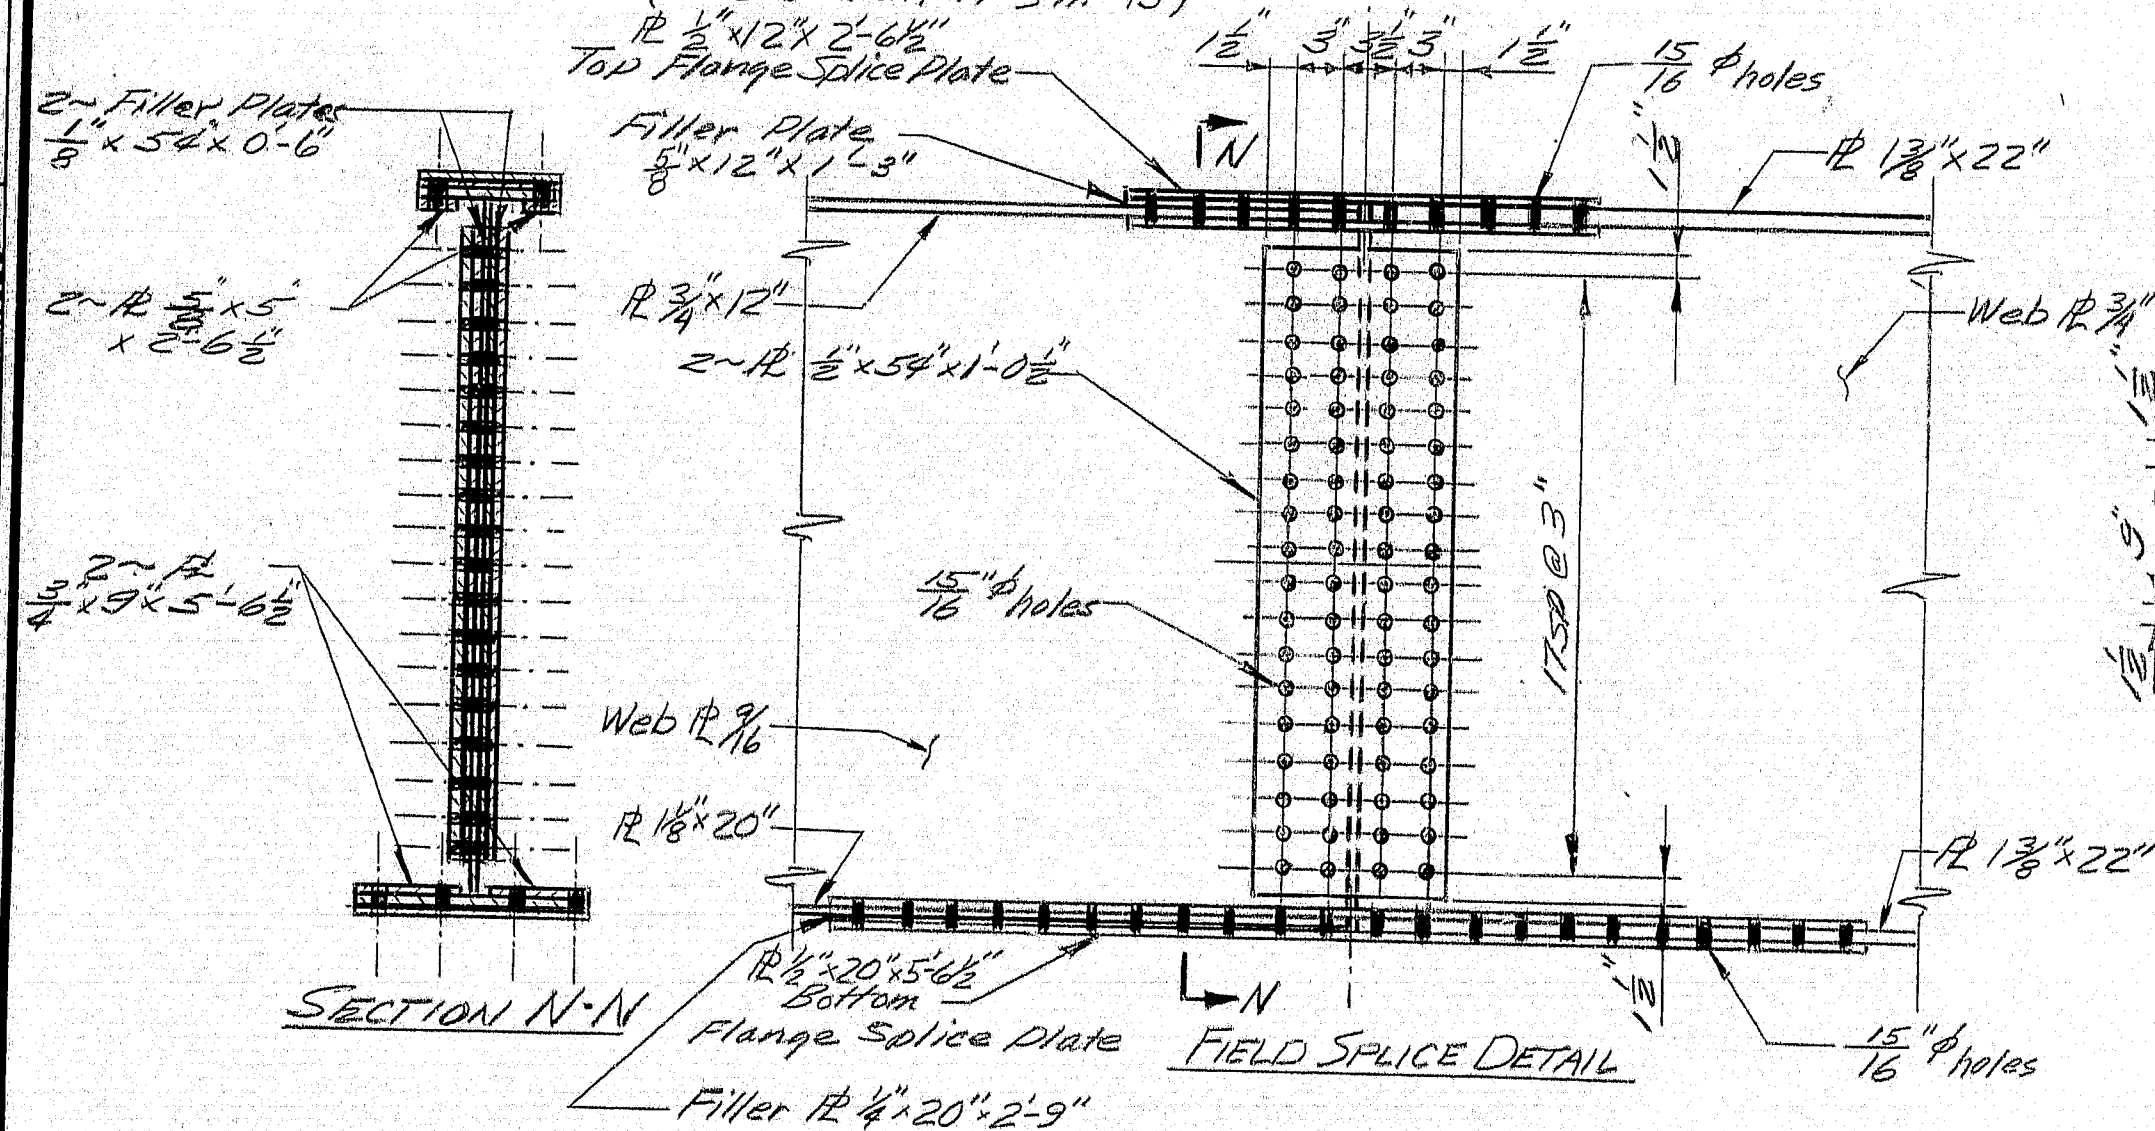 ℄ 1/2" x 12" x 2'-6 1/2"
Top Flange Splice Plate
1 1/2" 3" 3 1/2" 3" 1 1/2"
15/16 ϕ holes
2~ Filler Plates
1/8" x 54" x 0'-6"
Filler Plate
5/8" x 12" x 1'-3"
N
1 1/2"
PL 1 3/8" x 22"
2~ PL 5/8" x 5"
x 2'-6 1/2"
PL 3/4" x 12"
Web PL 3/4"
2~ PL 1/2" x 54" x 1'-0 1/2"
1 1/2"
9"
1 1/2"
17SP @ 3"
2~ PL
3/4" x 9" x 5'-6 1/2"
15/16" ϕ holes
Web PL 9/16
PL 1 1/8" x 20"
PL 1 3/8" x 22"
PL 1/2" x 20" x 5'-6 1/2"
Bottom
Flange Splice Plate
N
1 1/2"
SECTION N-N
FIELD SPLICE DETAIL
15/16" ϕ holes
Filler PL 1/4" x 20" x 2'-9"